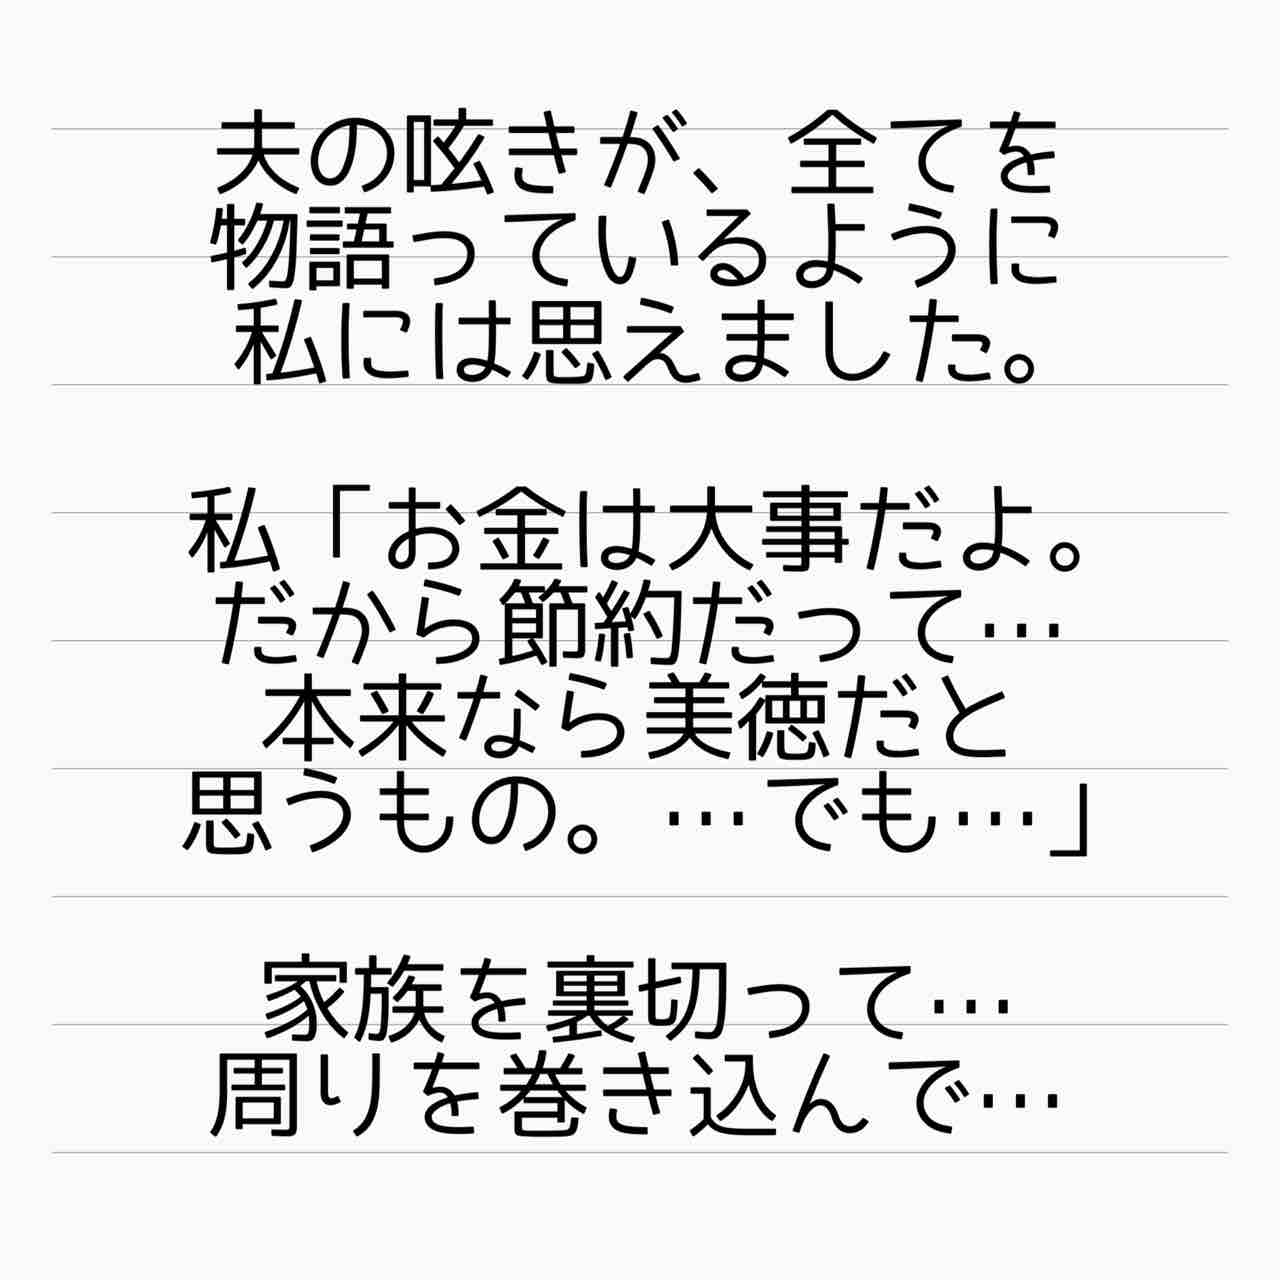 夫の呟きが、全てを
物語っているように
私には思えました。
私「お金は大事だよ。
だから節約だって…
本来なら美徳だと
思うもの。…でも…」
家族を裏切って…
周りを巻き込んで…